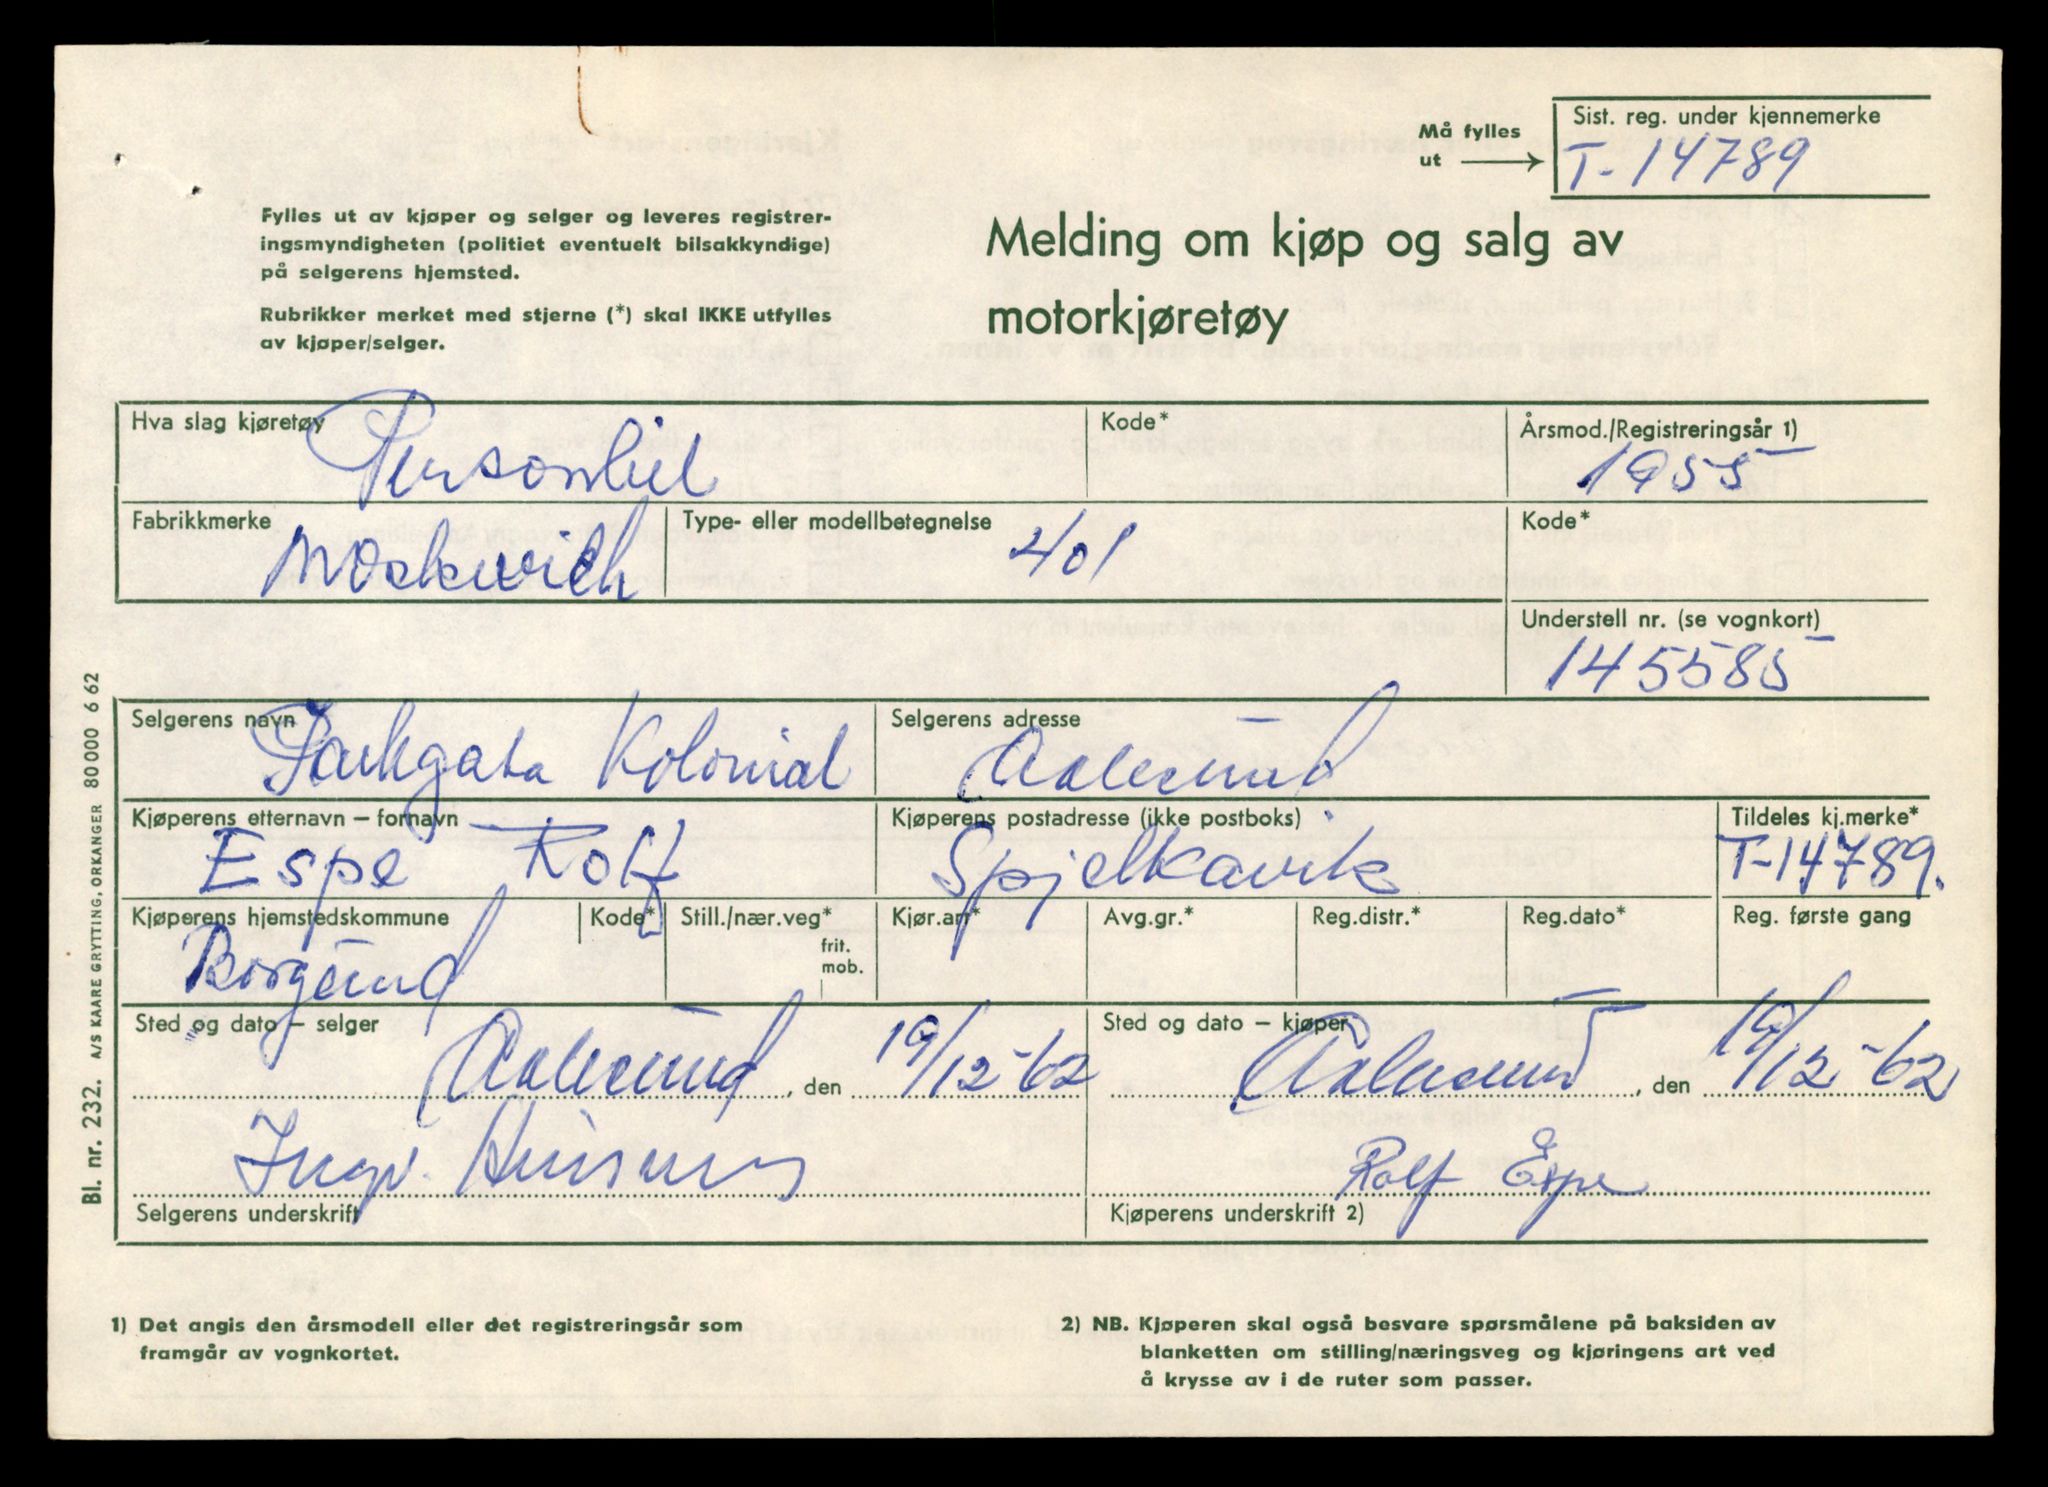 Må fylles
ut
Sist. reg. under kjennemerke
T-14789
Fylles ut av kjøper og selger og leveres registrer-
ingsmyndigheten (politiet eventuelt bilsakkyndige)
på selgerens hjemsted.
Rubrikker merket med stjerne (*) skal IKKE utfylles
av kjøper/selger.
Melding om kjøp og salg av
motorkjøretøy
Hva slag kjøretøy
Personbil
Kode*
Årsmod./Registreringsår 1)
1955
Fabrikkmerke
Moskwich
Type- eller modellbetegnelse
401
Kode*
Understell nr. (se vognkort)
145585
Selgerens navn
Parkgata Kolonial
Selgerens adresse
Aalesund
Kjøperens etternavn – fornavn
Espe Rolf
Kjøperens postadresse (ikke postboks)
Spjelkavik
Tildeles kj.merke*
T-14789.
Kjøperens hjemstedskommune
Borgund
Kode*
Still./nær.veg*
frit.
mob.
Kjør.art*
Avg.gr.*
Reg.distr.*
Reg.dato*
Reg. første gang
Sted og dato – selger
Aalesund, den 19/12-62
Sted og dato – kjøper
Aalesund, den 19/12-62
Ingv.
Selgerens underskrift
Rolf Espe
Kjøperens underskrift 2)
1) Det angis den årsmodell eller det registreringsår som
framgår av vognkortet.
2) NB. Kjøperen skal også besvare spørsmålene på baksiden av
blanketten om stilling/næringsveg og kjøringens art ved
å krysse av i de ruter som passer.
Bl. nr. 232. A/S KAARE GRYTTING, ORKANGER 80000 6 62